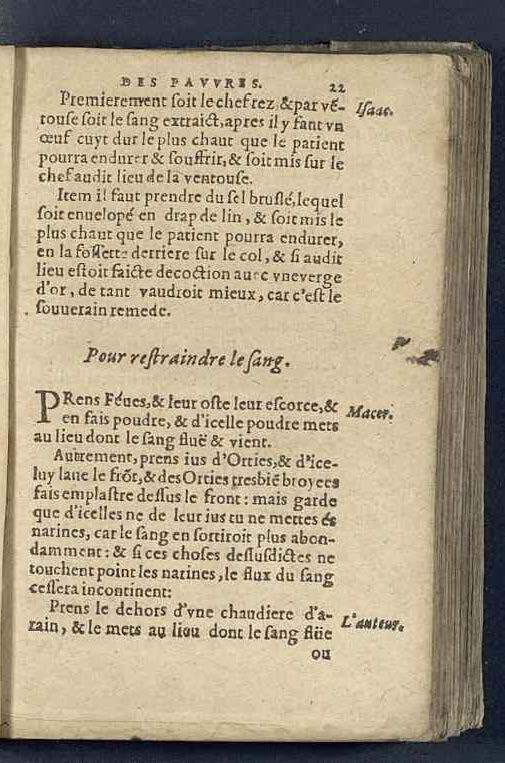 DES PAVVRES. 22
Premierement soit le chef rez, &par vē-
touse soit le sang extraict, apres il y fant vn
œuf cuyt dur le plus chaut que le patient
pourra endurer & souffrir, & soit mis sur le
chef audit lieu de la ventouse.
Isaac.
Item il faut prendre du sel bruslé, lequel
soit enuelopé en drap de lin, & soit mis le
plus chaut que le patient pourra endurer,
en la fossette derriere sur le col, & si audit
lieu estoit faicte decoction auec vneverge
d'or, de tant vaudroit mieux, car c'est le
souuerain remede.
Pour restraindre le sang.
PRens Féues, & leur oste leur escorce, &
en fais poudre, & d'icelle poudre mets
au lieu dont le sang fluë & vient.
Macer.
Autrement, prens ius d'Orties, & d'ice-
luy laue le frōt, & des Orties tresbiē broyees
fais emplastre dessus le front : mais garde
que d'icelles ne de leur ius tu ne mettes és
narines, car le sang en sortiroit plus abon-
damment : & si ces choses dessusdictes ne
touchent point les narines, le flux du sang
cessera incontinent:
Prens le dehors d'vne chaudiere d'a-
rain, & le mets au lieu dont le sang flüe
L'auteur.
ou